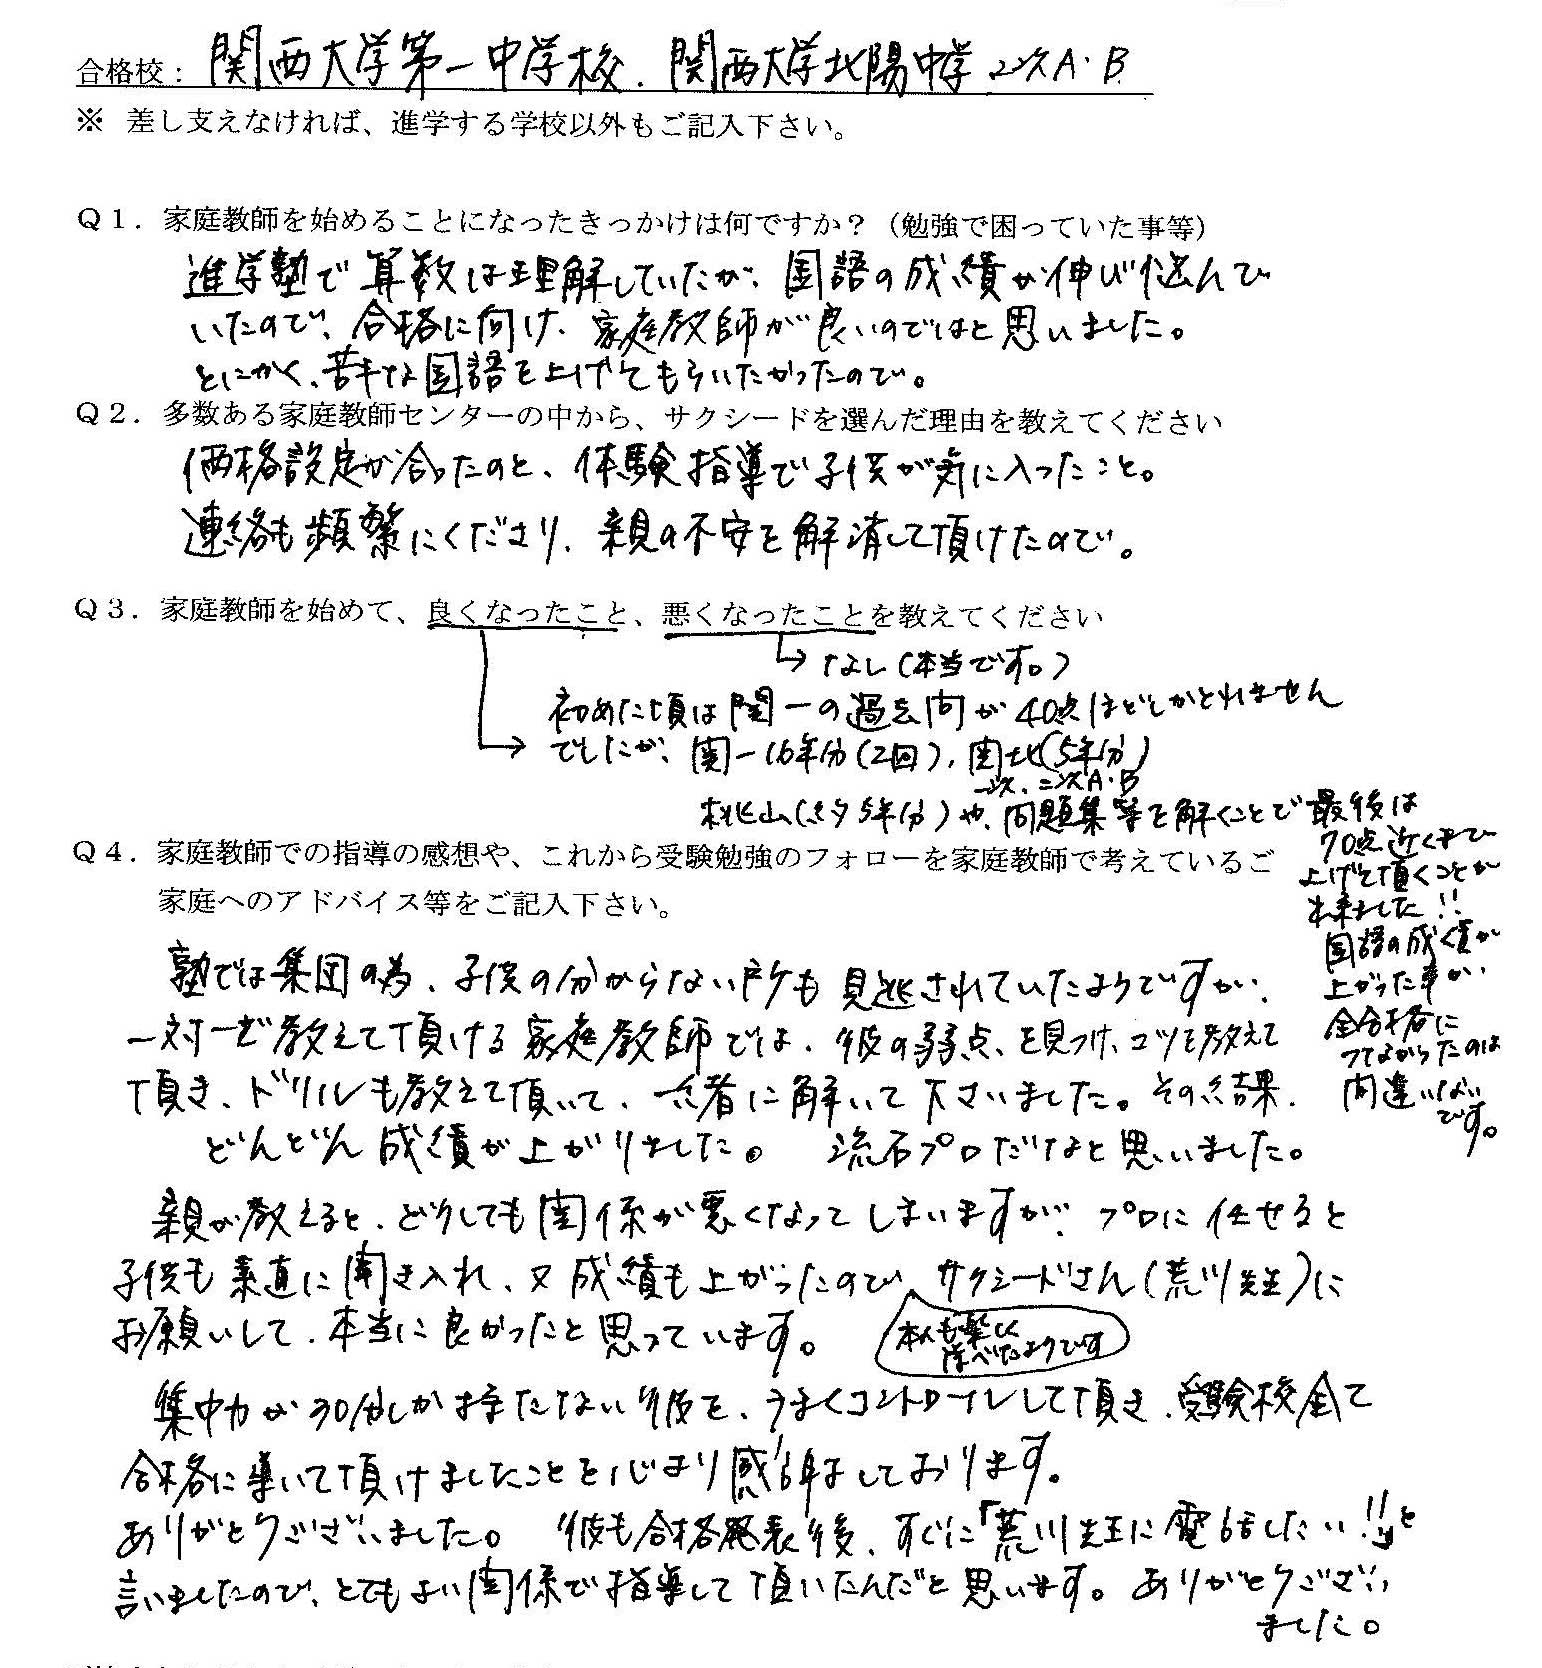 合格校：関西大学第一中学校、関西大学北陽中学 2次A・B
※ 差し支えなければ、進学する学校以外もご記入下さい。
Q1．家庭教師を始めることになったきっかけは何ですか？（勉強で困っていた事等）
進学塾で算数は理解していたが、国語の成績が伸び悩んで
いたので、合格に向け、家庭教師が良いのではと思いました。
とにかく、苦手な国語を上げてもらいたかったので。
Q2．多数ある家庭教師センターの中から、サクシードを選んだ理由を教えてください
価格設定が合ったのと、体験指導で子供が気に入ったこと。
連絡も頻繁にくださり、親の不安を解消して頂けたので。
Q3．家庭教師を始めて、良くなったこと、悪くなったことを教えてください
→ なし（本当です。）
初めた頃は関一の過去問が40点ほどしかとれません
→ でしたが、関一16年分（2回）、関北（5年分）
一次、二次A・B
桃山（5年分）や、問題集等を解くことで最後は
70点近くまで
上げて頂くことが
出来ました!!
国語の成績が
上がった事が、
全合格に
つながったのは
間違いない
です。
Q4．家庭教師での指導の感想や、これから受験勉強のフォローを家庭教師で考えているご
家庭へのアドバイス等をご記入下さい。
塾では集団の為、子供の分からない所も見逃されていたようですが、
一対一で教えて頂ける家庭教師では、彼の弱点を見つけ、コツを教えて
頂き、ドリルも教えて頂いて、一緒に解いて下さいました。その結果、
どんどん成績が上がりました。 流石プロだなと思いました。
親が教えると、どうしても関係が悪くなってしまいますが、プロに任せると
子供も素直に聞き入れ、又成績も上がったので、サクシードさん（荒川先生）に
お願いして、本当に良かったと思っています。
本人も楽しく
学べたようです
集中力が30分しか持たない彼を、うまくコントロールして頂き、受験校全て
合格に導いて頂けましたことを心より感謝しております。
ありがとうございました。 彼も合格発表後、すぐに「荒川先生に電話したい!!」と
言いましたので、とてもよい関係で指導して頂いたんだと思います。ありがとうござい
ました。